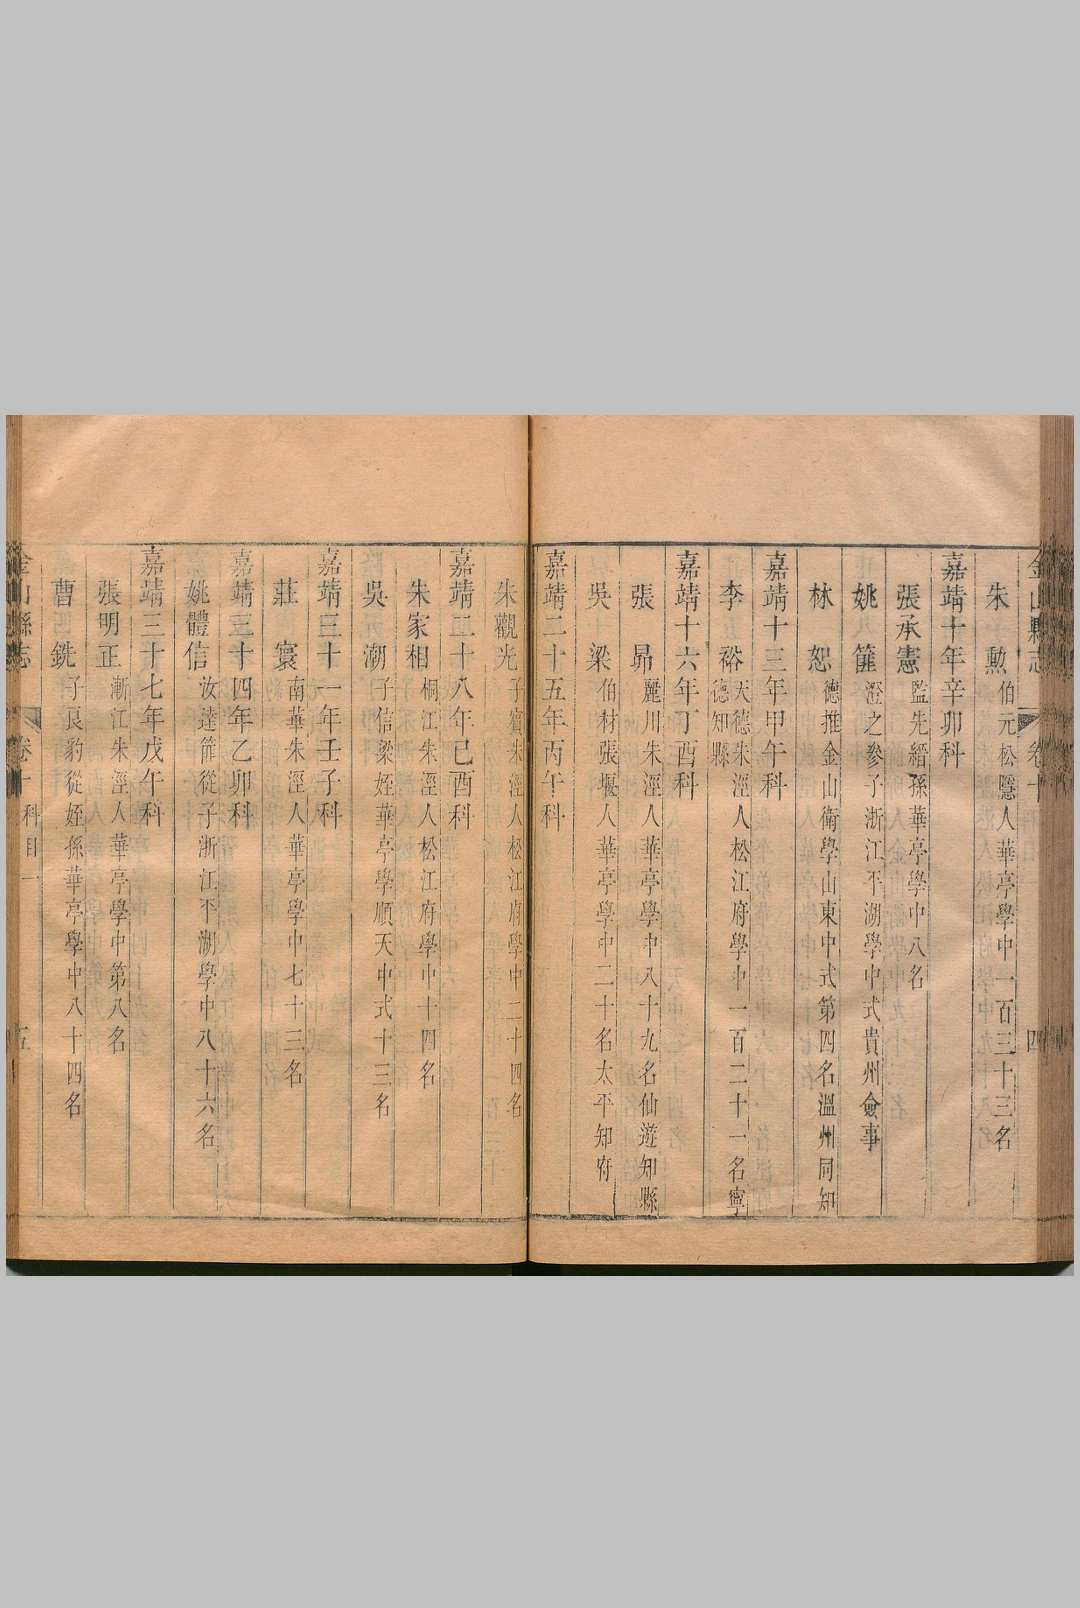 金山縣志 卷十 四
朱勲 伯元松隱人華亭學中一百三十三名
嘉靖十年辛卯科
張承憲 監先縉孫華亭學中八名
姚篚 澄之參子浙江平湖學中式貴州僉事
林恕 德推金山衛學山東中式第四名溫州同知
嘉靖十三年甲午科
李裕 天德朱涇人松江府學中一百二十一名寧
德知縣
嘉靖十六年丁酉科
張昴 麗川朱涇人華亭學中八十九名仙遊知縣
吳梁 伯材張堰人華亭學中二十名太平知府
嘉靖二十五年丙午科
朱觀光 子賓朱涇人松江府學中二十四名
嘉靖二十八年己酉科
朱家相 桐江朱涇人松江府學中十四名
吳潮 子信梁姪華亭學順天中式十三名
嘉靖三十一年壬子科
莊寰 南華朱涇人華亭學中七十三名
嘉靖三十四年乙卯科
姚體信 汝達篚從子浙江平湖學中八十六名
嘉靖三十七年戊午科
張明正 漸江朱涇人華亭學中第八名
曹銑 子良豹從姪孫華亭學中八十四名
金山縣志 卷十 科目一 五